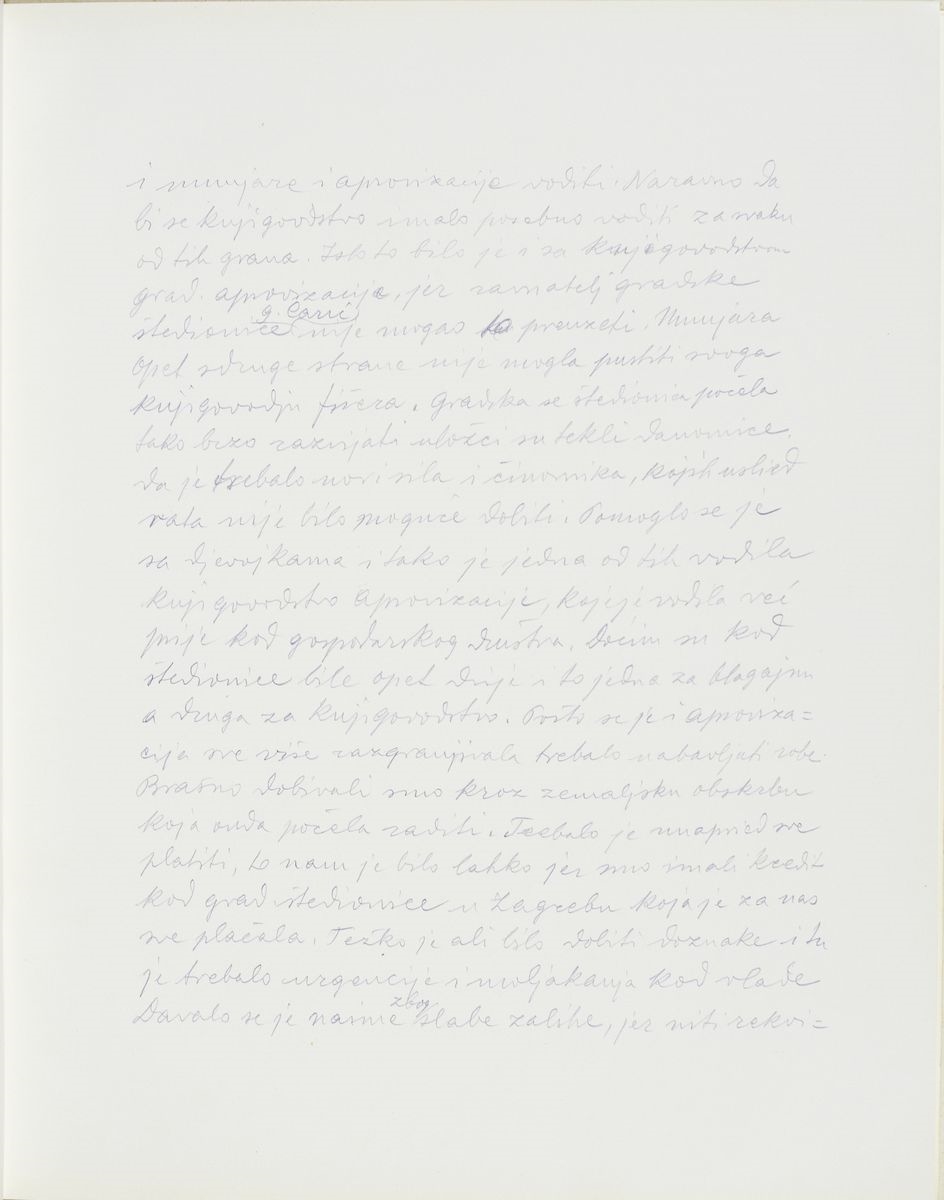 i munjare i aprovizacije voditi. Naravno da
bi se knjigovodstvo imalo posebno voditi za svaku
od tih grana. Isto to bilo je i sa knjigovodstvom
grad. aprovizacije, jer ravnatelj gradske
g. Carić
štedionice nije mogao to preuzeti. Munjara
opet s druge strane nije mogla pustiti svoga
knjigovodju fišera. Gradska se štedionica počela
tako brzo razvijati ulošci su tekli danomice.
da je trebalo novi sila i činovnika, kojih uslied
rata nije bilo moguće dobiti. Pomoglo se je
sa djevojkama i tako je jedna od tih vodila
knjigovodstvo aprovizacije, koje je vodila već
prije kod gospodarskog društva. Dočim su kod
štedionice bile opet dvije i to jedna za blagajnu
a druga za knjigovodstvo. Pošto se je i aproviza=
cija sve više razgranjivala trebalo nabavljati robe.
Brašno dobivali smo kroz zemaljsku obskrbu
koja onda počela raditi. Trebalo je unapried sve
platiti, to nam je bilo lahko jer smo imali kredit
kod grad štedionice u Zagrebu koja je za nas
sve plaćala. Težko je ali bilo dobiti doznake i tu
je trebalo urgencije i moljakanja kod vlade
zbog
Davalo se je naime slabe zalihe, jer niti rekvi=